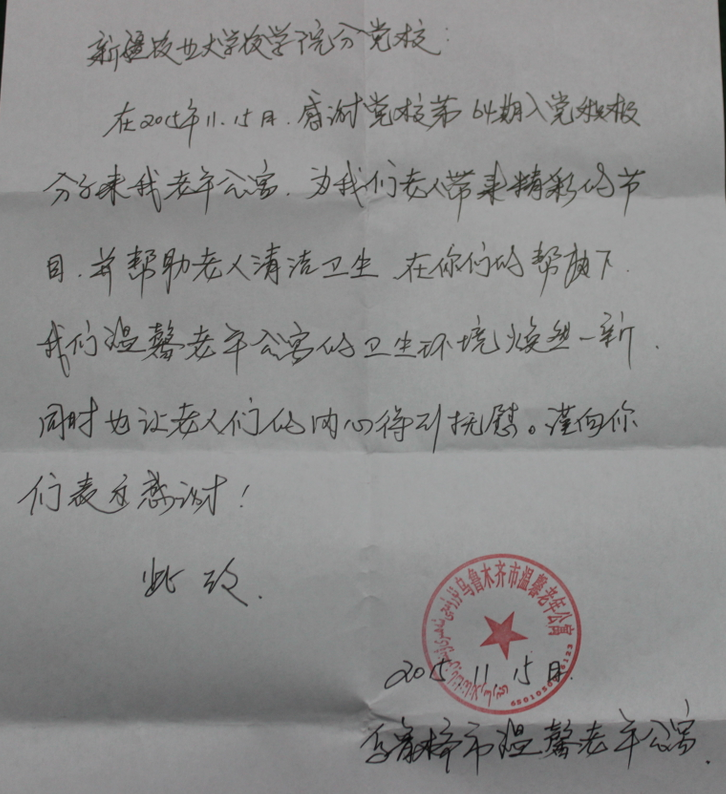 新疆农业大学农学院分党校：
在2015年11.15日.感谢党校第64期入党积极
分子来我老年公寓.为我们老人带来精彩的节
目.并帮助老人清洁卫生.在你们的帮助下.
我们温馨老年公寓的卫生环境焕然一新.
同时也让老人们的内心得到抚慰。谨向你
们表示感谢！
此致.
乌鲁木齐市温馨老年公寓
2015 11 15日.
乌鲁木齐市温馨老年公寓.